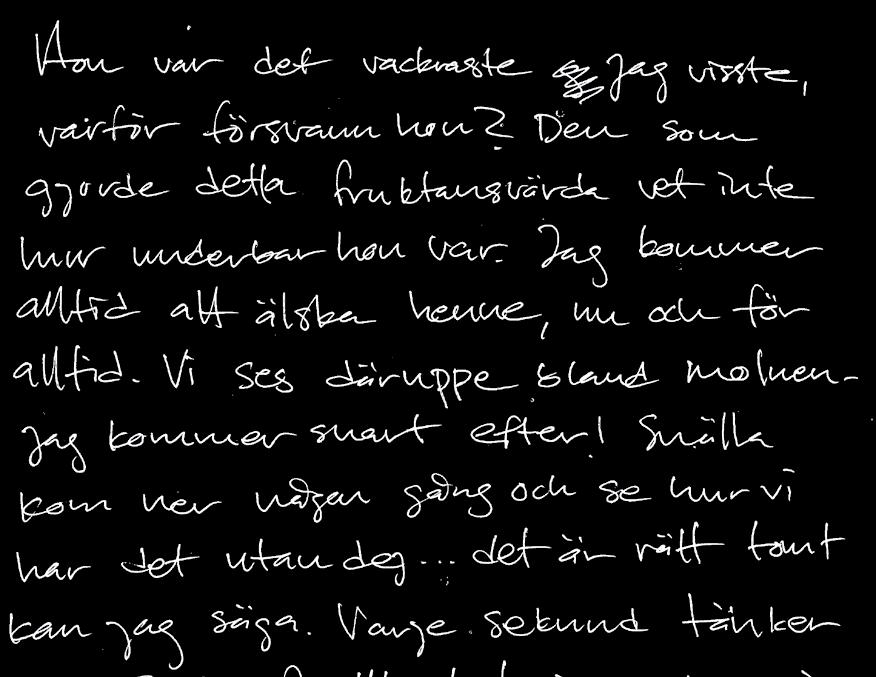 Hon var det vackraste jag visste,
varför försvann hon? Den som
gjorde detta fruktansvärda vet inte
hur underbar hon var. Jag kommer
alltid att älska henne, nu och för
alltid. Vi ses däruppe bland molnen -
jag kommer snart efter! Snälla
kom ner någon gång och se hur vi
har det utan deg... det är rätt tomt
kan jag säga. Varje sekund tänker